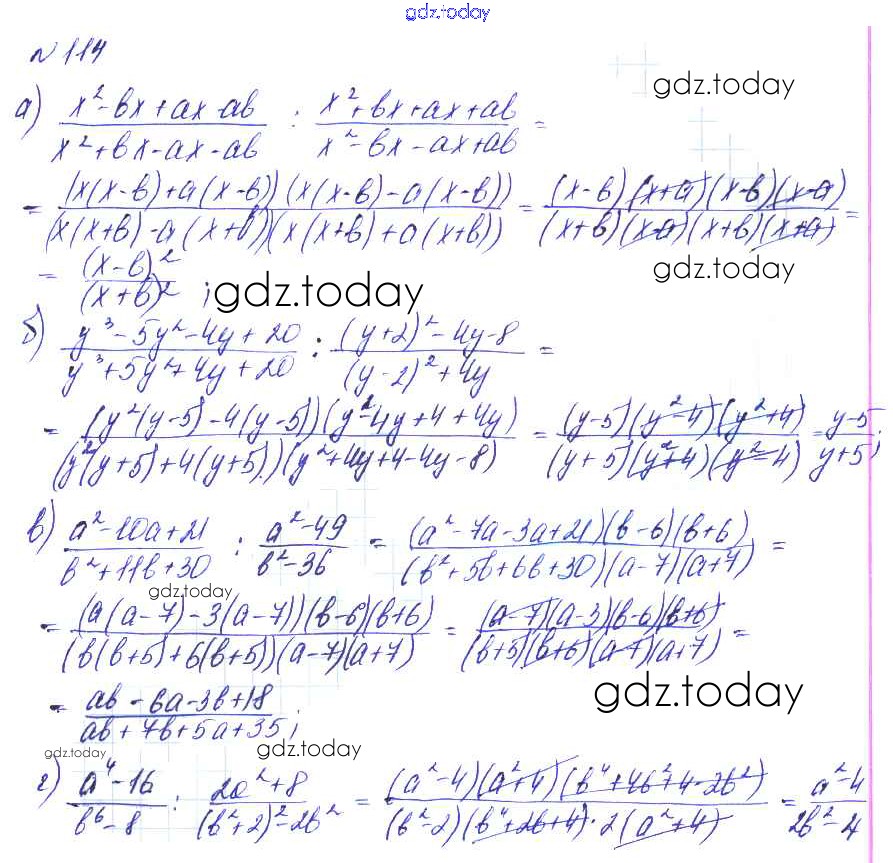 gdz.today
№ 114
gdz.today
а) (x² - вx + ax - aв)/(x² + вx - ax - aв) : (x² + вx + ax + aв)/(x² - вx - ax + aв) =
= ((x(x-в) + a(x-в))(x(x-в) - a(x-в)))/((x(x+в) - a(x+в))(x(x+в) + a(x+в))) = ((x-в)(x+a)(x-в)(x-a))/((x+в)(x-a)(x+в)(x+a)) =
gdz.today
= (x-в)²/(x+в)² ; gdz.today
б) (y³ - 5y² - 4y + 20)/(y³ + 5y² + 4y + 20) : ((y+2)² - 4y - 8)/((y-2)² + 4y) =
= ((y²(y-5) - 4(y-5))(y² - 4y + 4 + 4y))/((y²(y+5) + 4(y+5))(y² + 4y + 4 - 4y - 8)) = ((y-5)(y²-4)(y²+4))/((y+5)(y²+4)(y²-4)) = (y-5)/(y+5) ;
в) (a² - 10a + 21)/(в² + 11в + 30) : (a² - 49)/(в² - 36) = ((a² - 7a - 3a + 21)(в-6)(в+6))/((в² + 5в + 6в + 30)(a-7)(a+7)) =
gdz.today
= ((a(a-7) - 3(a-7))(в-6)(в+6))/((в(в+5) + 6(в+5))(a-7)(a+7)) = ((a-7)(a-3)(в-6)(в+6))/((в+5)(в+6)(a-7)(a+7)) =
gdz.today
= (aв - 6a - 3в + 18)/(aв + 7в + 5a + 35) ;
gdz.today
gdz.today
г) (a⁴ - 16)/(в⁶ - 8) : (2a² + 8)/((в²+2)² - 2в²) = ((a²-4)(a²+4)(в⁴ + 4в² + 4 - 2в²))/((в²-2)(в⁴ + 2в + 4) · 2(a²+4)) = (a² - 4)/(2в² - 4)